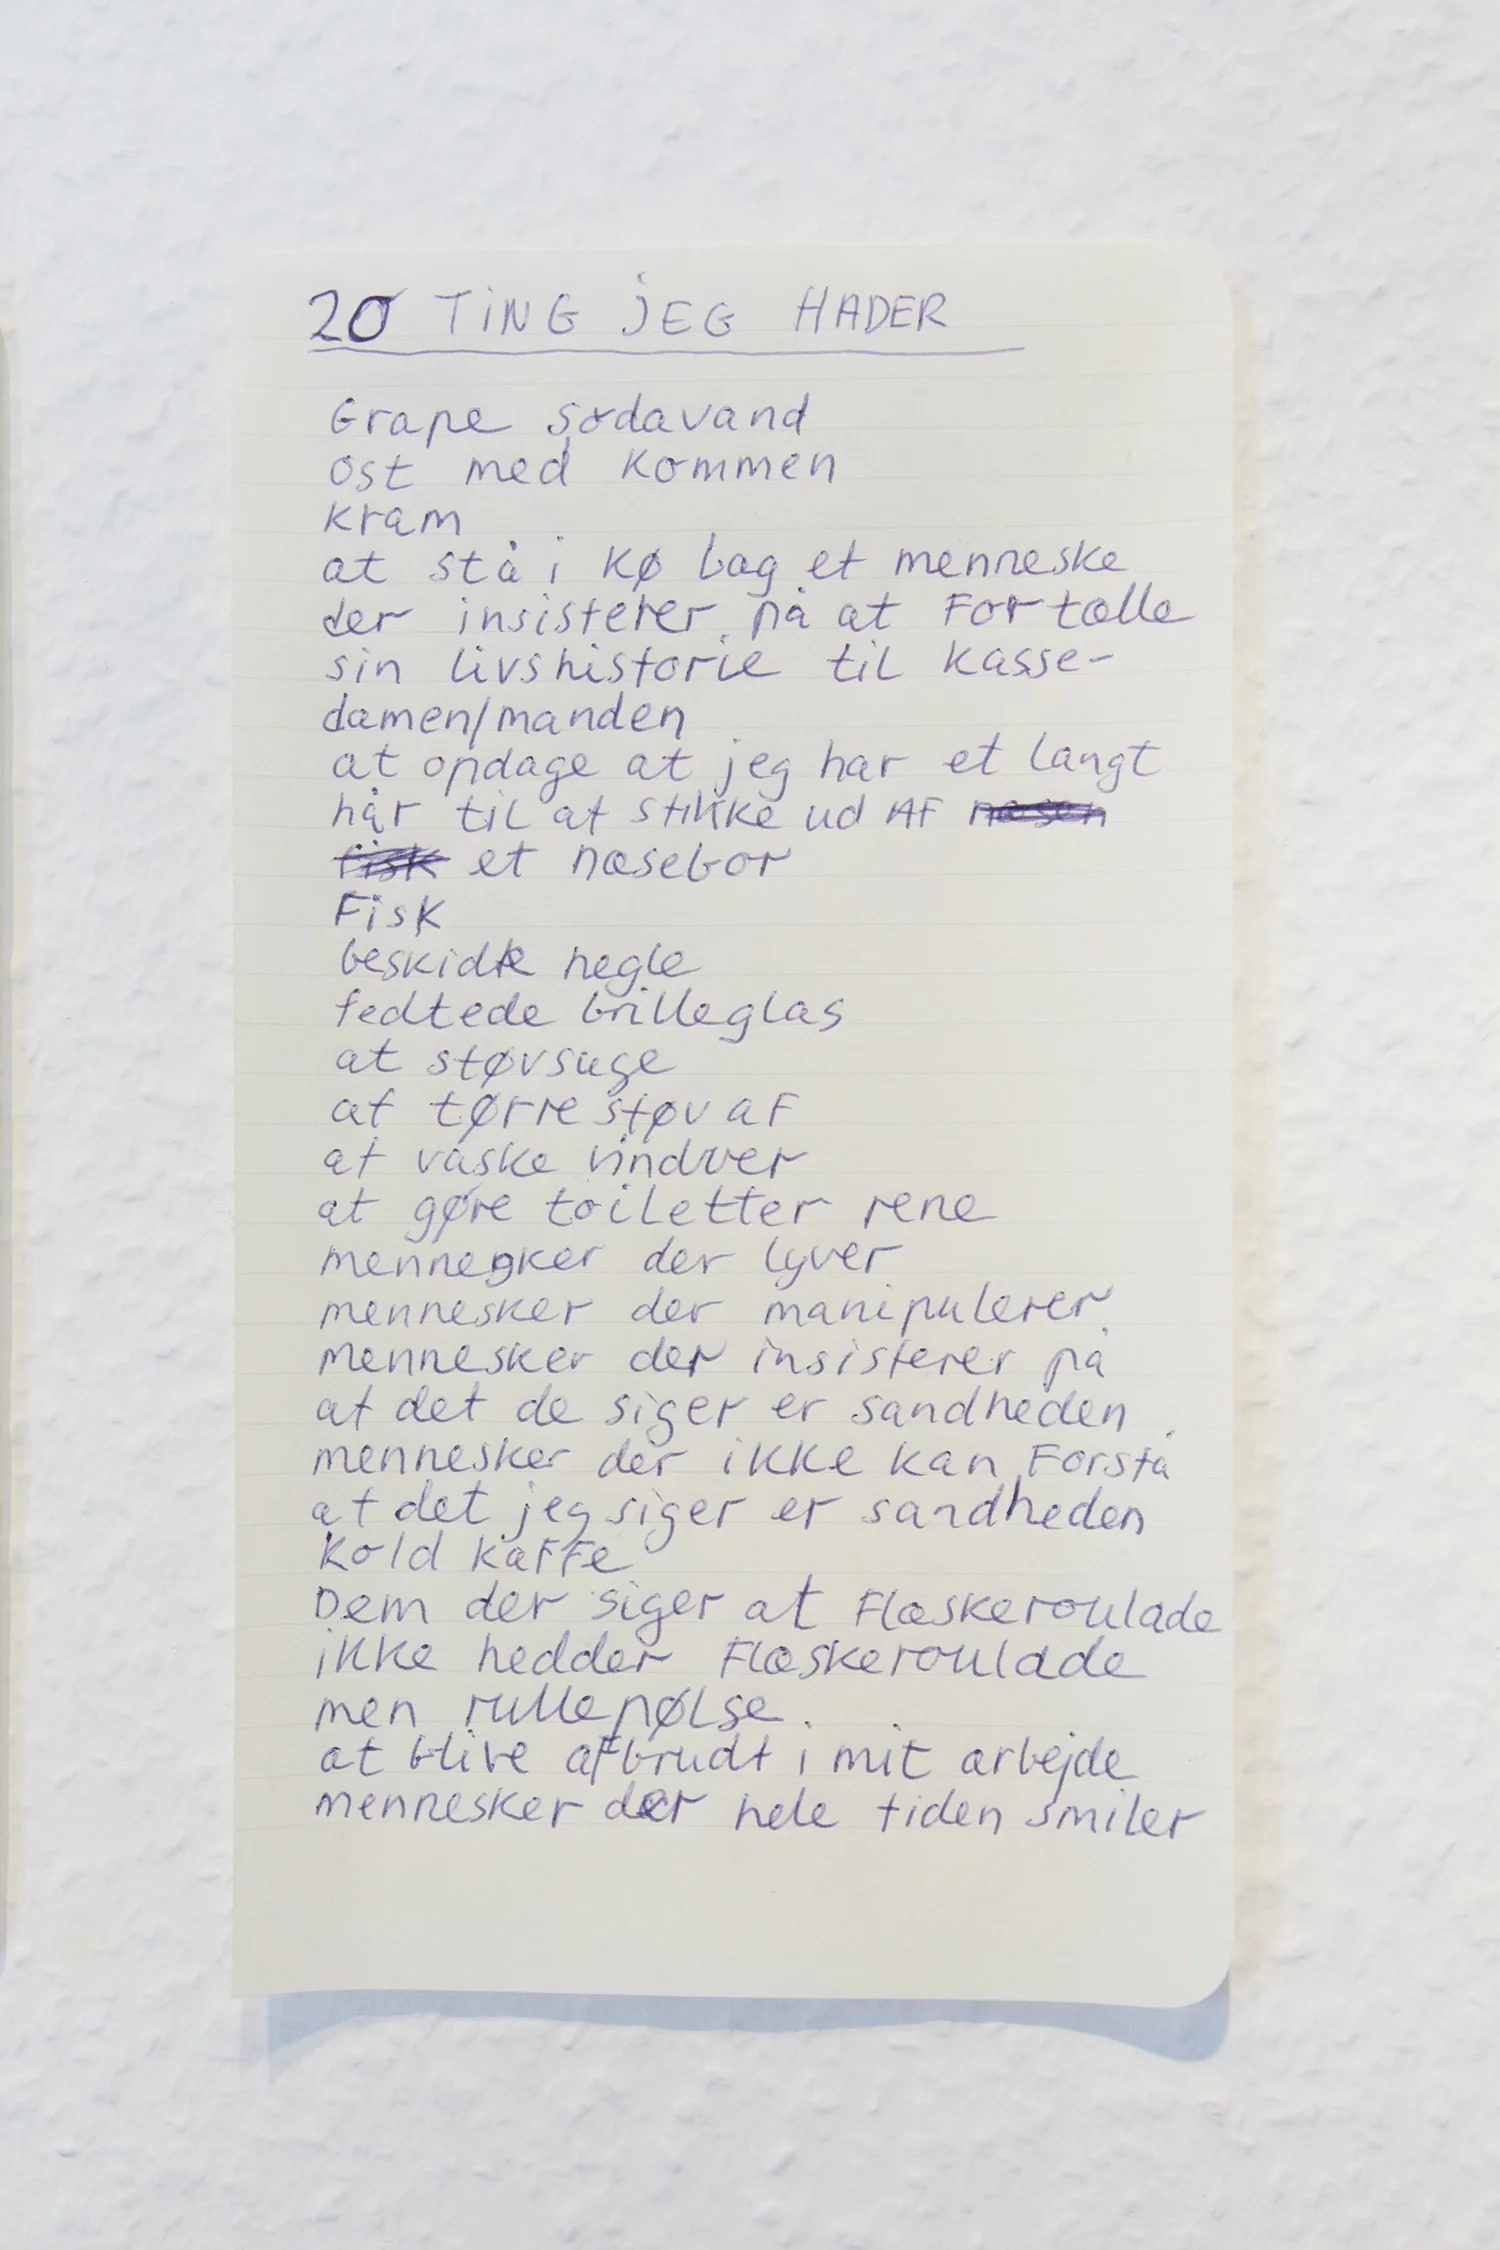 20 TiNG jEG HADER
Grape sodavand
ost med kommen
kram
at stå i kø bag et menneske
der insisterer på at Fortælle
sin livshistorie til kasse-
damen/manden
at opdage at jeg har et langt
hår til at stikke ud AF næsen
fisk et næsebor
Fisk
beskidte negle
fedtede brilleglas
at støvsuge
at tørre støv aF
at vaske vinduer
at gøre toiletter rene
mennesker der lyver
mennesker der manipulerer
mennesker der insisterer på
at det de siger er sandheden
mennesker der ikke kan Forstå
at det jeg siger er sandheden
Kold kaFFe
Dem der siger at Flæskeroulade
ikke hedder Flæskeroulade
men rullepølse.
at blive aFbrudt i mit arbejde
mennesker der hele tiden smiler